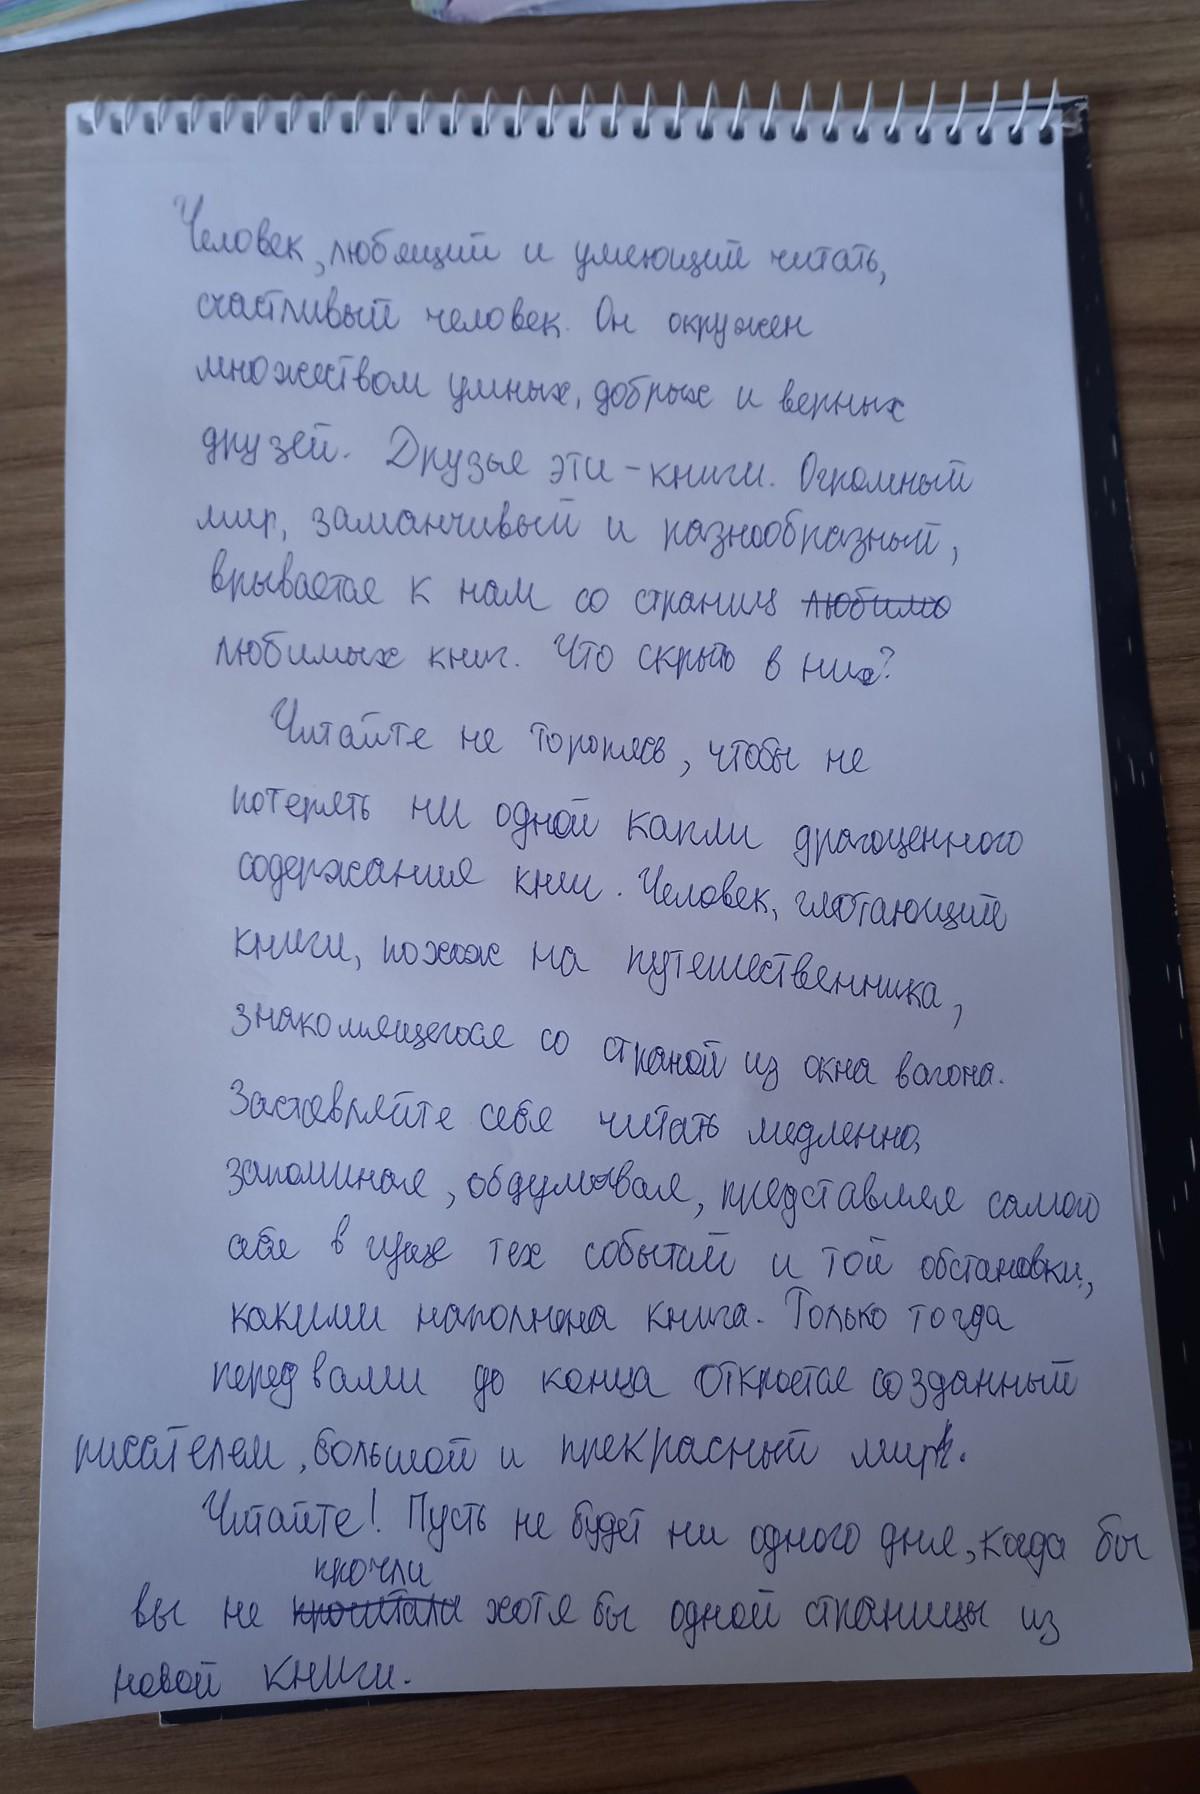 Человек, любящий и умеющий читать,
счастливый человек. Он окружен
множеством умных, добрых и верных
друзей. Друзья эти - книги. Огромный
мир, заманчивый и разнообразный,
врывается к нам со страниц любимо
любимых книг. Что скрыто в них?
Читайте не торопясь, чтобы не
потерять ни одной капли драгоценного
содержания книг. Человек, глотающий
книги, похож на путешественника,
знакомящегося со страной из окна вагона.
Заставляйте себя читать медленно,
запоминая, обдумывая, представляя самого
себя в гуще тех событий и той обстановки,
какими наполнена книга. Только тогда
перед вами до конца откроется созданный
писателем, большой и прекрасный мир.
Читайте! Пусть не будет ни одного дня, когда бы
прочли
вы не прочитали хотя бы одной страницы из
новой книги.